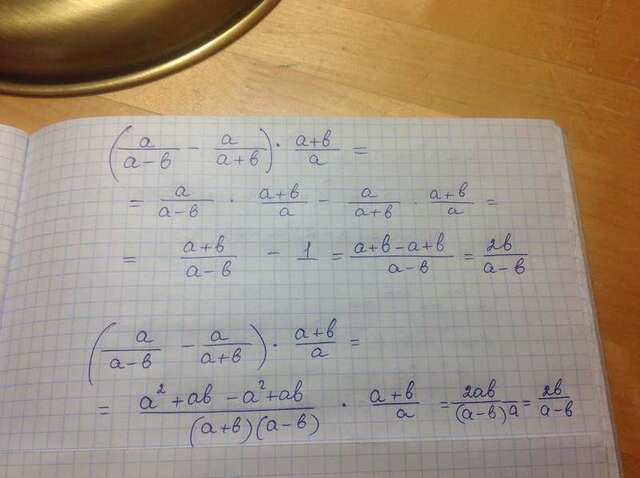 (a/(a-b) - a/(a+b)) · (a+b)/a =
= a/(a-b) · (a+b)/a - a/(a+b) · (a+b)/a =
= (a+b)/(a-b) - 1 = (a+b-a+b)/(a-b) = 2b/(a-b)
(a/(a-b) - a/(a+b)) · (a+b)/a =
= (a²+ab-a²+ab)/((a+b)(a-b)) · (a+b)/a = 2ab/((a-b)a) = 2b/(a-b)